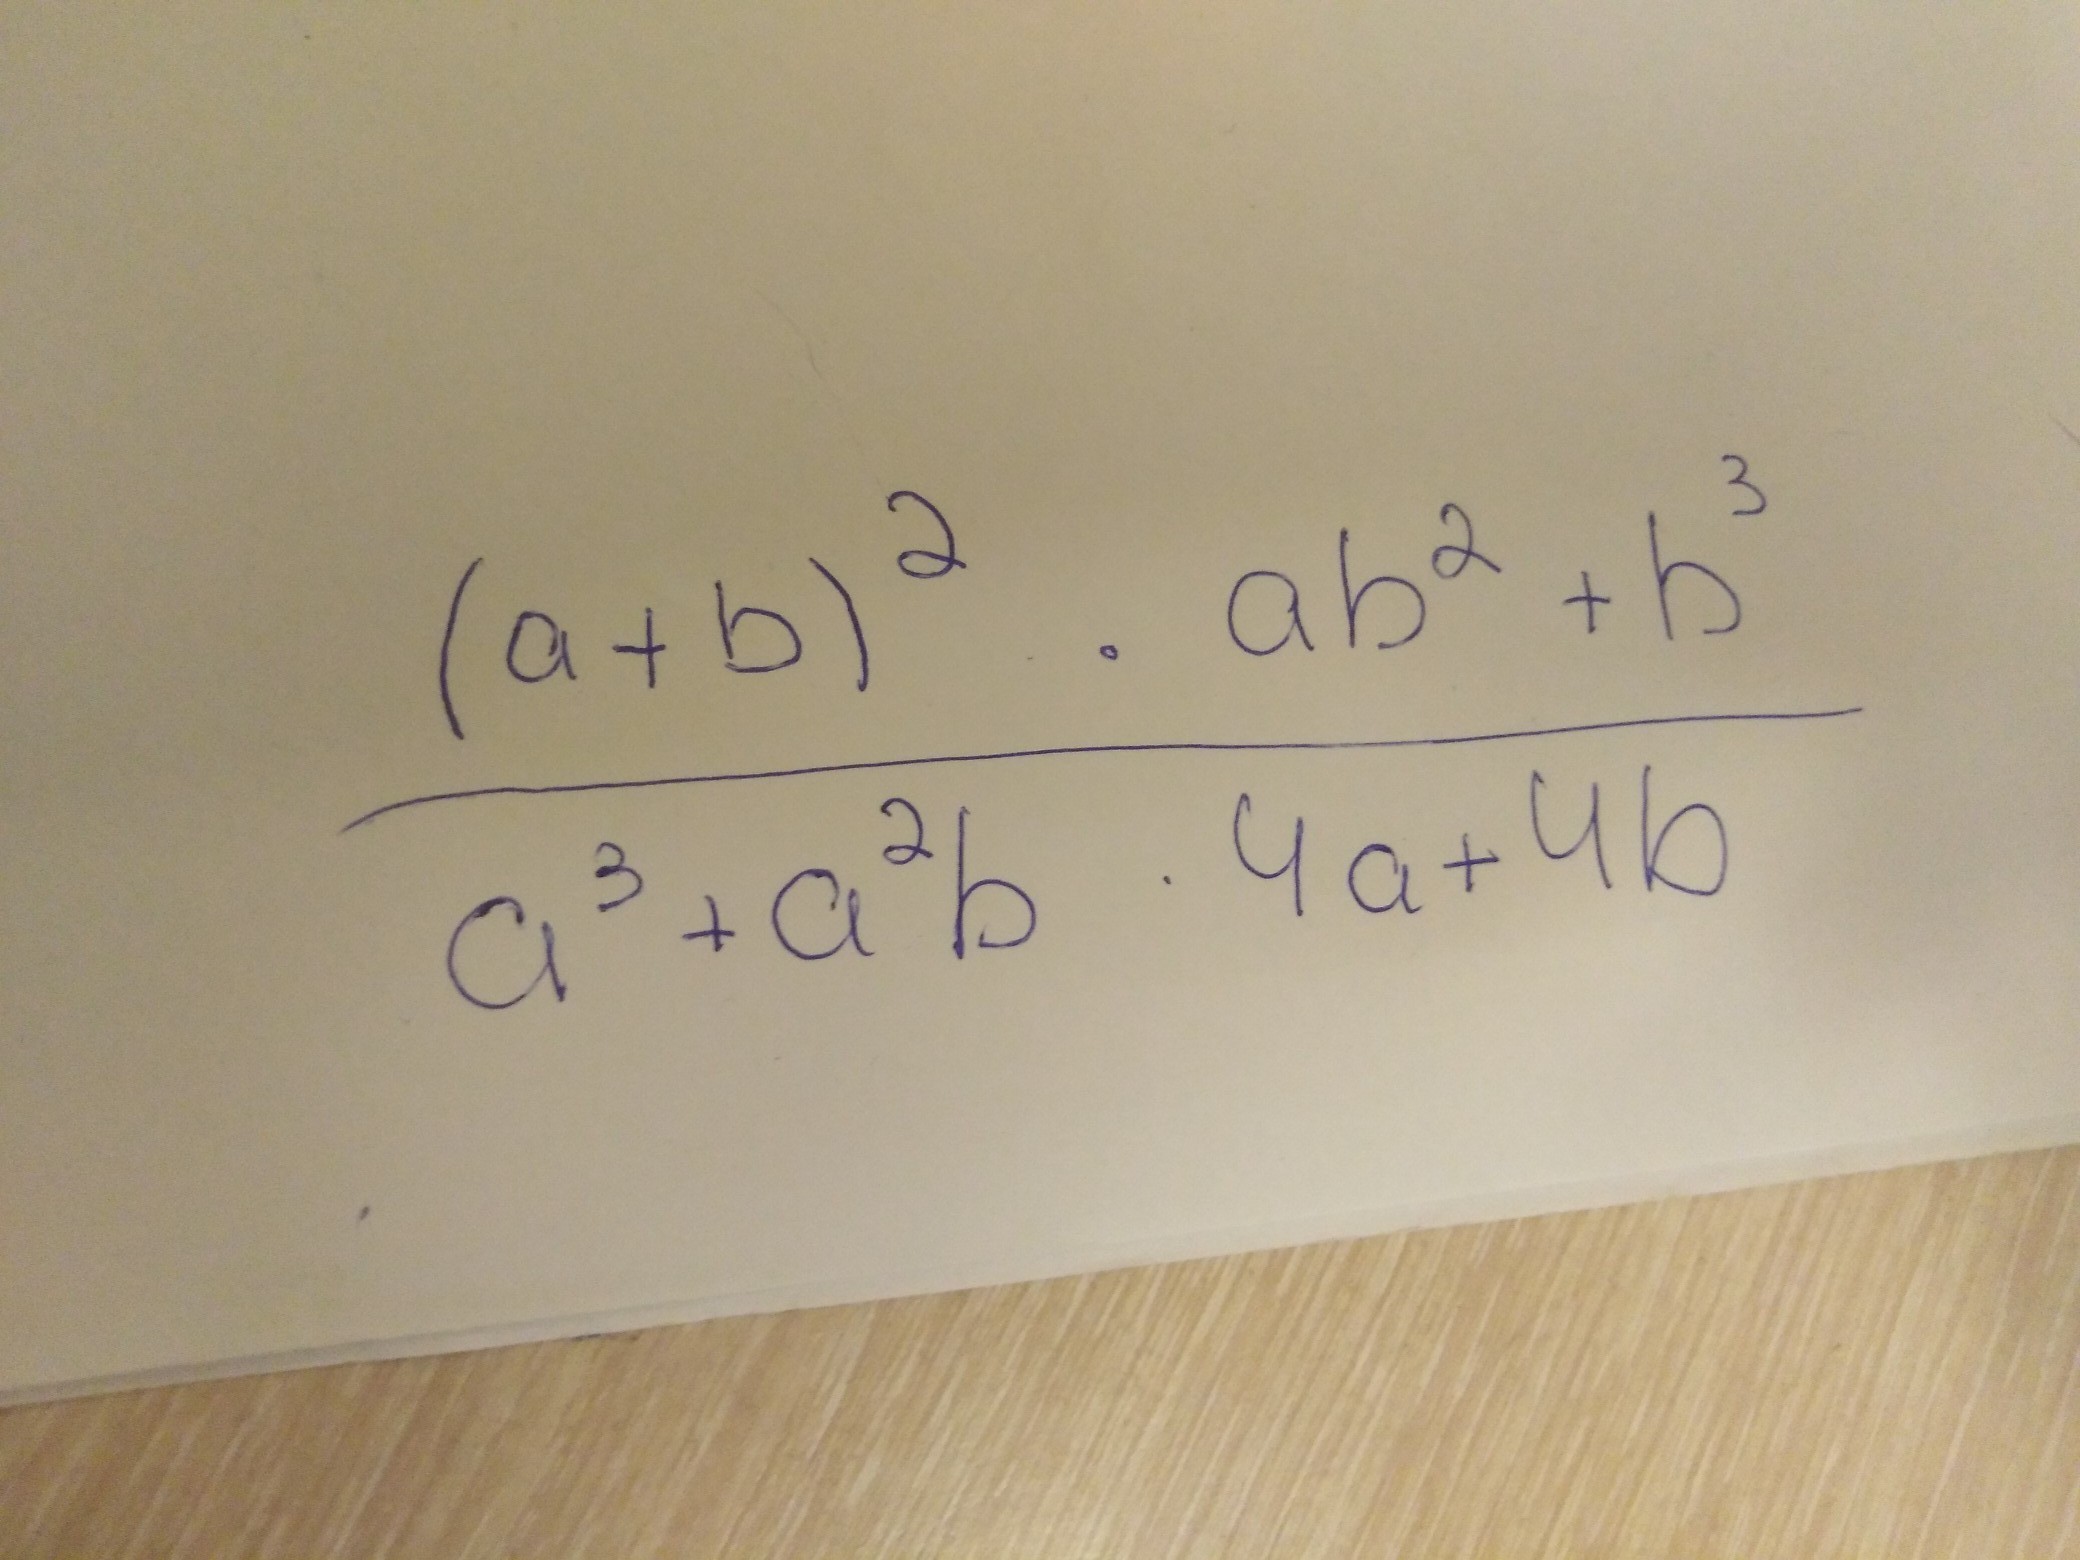 (a+b)² · ab² + b³
a³ + a²b · 4a + 4b